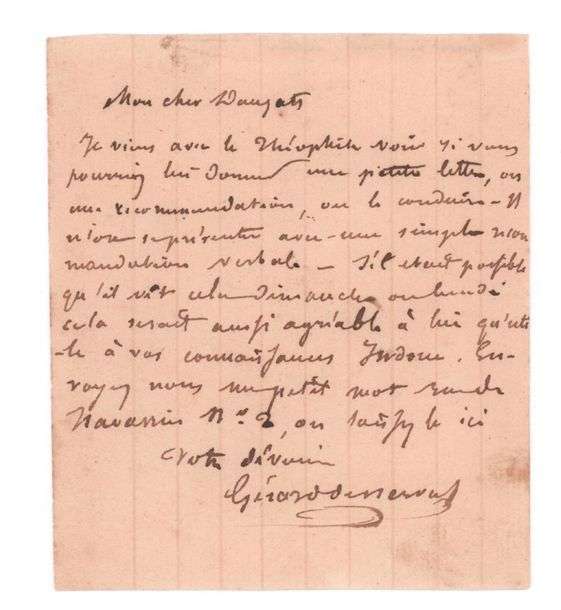 Mon cher Dauzats
Je viens avec le Théophile voir si vous
pourriez lui donner une petite lettre, ou
une recommandation, ou le conduire – Il
n'ose se présenter avec une simple recom
mandation verbale – S'il etait possible
qu'il vît cela Dimanche ou lundi
cela serait aussi agréable à lui qu'uti-
-le à vos connaissances Indoue. En-
voyez nous un petit mot rue de
Navarin No 2, ou laissez le ici
Votre dévoué
Gérard de Nerval